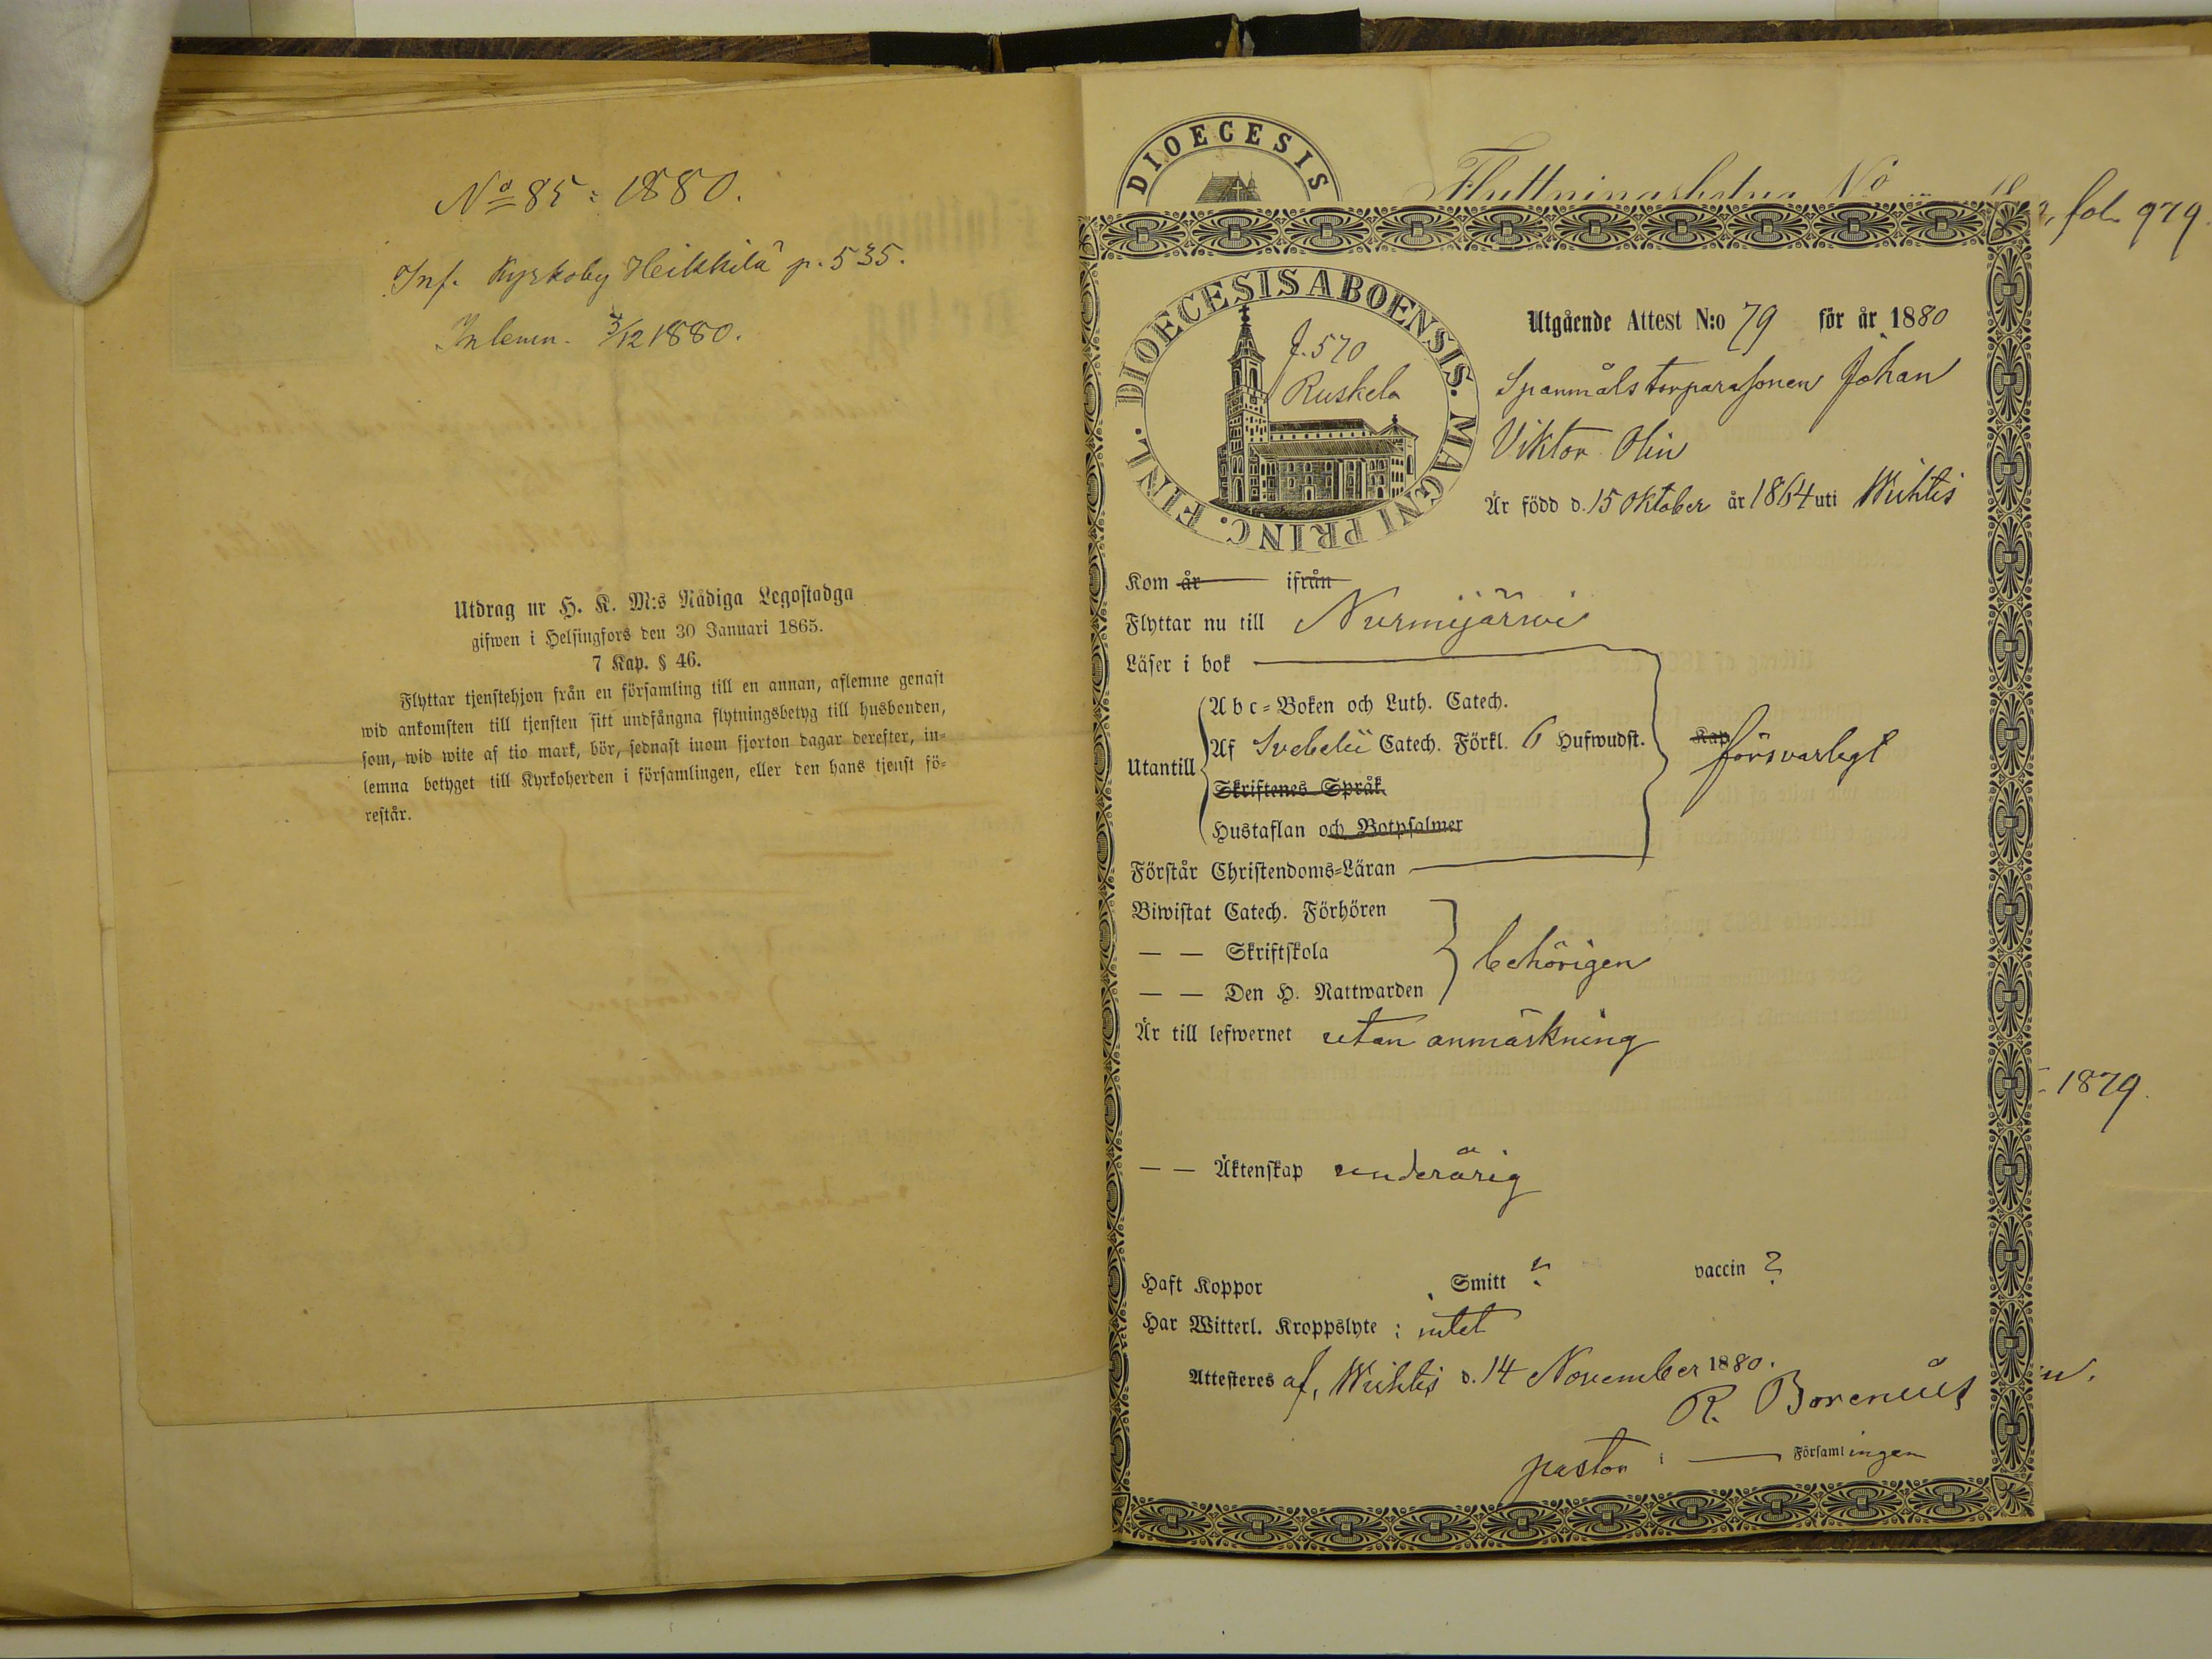 No 85: 1880.
Inf. Kyrkoby Heikkilä p. 535.
Inlemn. 3/12 1880.
Utdrag ur H. K. M:s Nådiga Legostadga
gifwen i Helsingfors den 30 Januari 1865.
7 Kap. § 46.
Flyttar tjenstehjon från en församling till en annan, aflemne genast
wid ankomsten till tjensten sitt undfångna flytningsbetyg till husbonden,
som, wid wite af tio mark, bör, sednast inom fjorton dagar derefter, in-
lemna betyget till Kyrkoherden i församlingen, eller den hans tjenst fö-
restår.
DIOECESIS
No
fol. 979
DIOECESIS ABOENSIS. MAGNI PRINC. FINL.
f. 570
Ruskela
Utgående Attest N:o 79 för år 1880
Spanmåls torparesonen Johan
Viktor Olin
Är född d. 15 Oktober år 1864 uti Wichtis
Kom år ifrån
Flyttar nu till Nurmijärwi
Läser i bok
Utantill
Abc-Boken och Luth. Catech.
Af Svebelii Catech. Förkl. 6 Hufwudst.
Skriftenes Språk.
Hustaflan och Botpsalmer
Kap
försvarligt
Förstår Christendoms-Läran
Biwistat Catech. Förhören
— — Skriftskola
— — Den H. Nattwarden
behörigen
Är till lefwernet utan anmärkning
1879.
— — Äktenskap underårig
Haft Koppor Smitt ? vaccin ?
Har Witterl. Kroppslyte : intet
Attesteres af, Wichtis d. 14 November 1880.
R. Borenius
pastor i — Församlingen